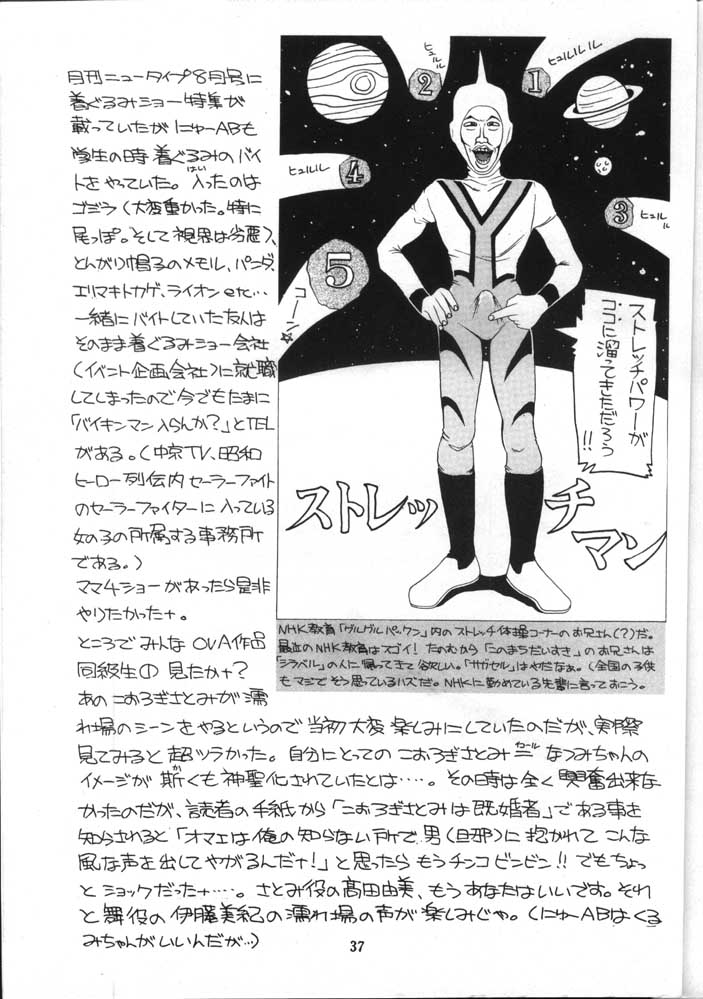 月刊ニュータイプ8月号に
着ぐるみショー特集が
載っていたがにゅーABも
学生の時着ぐるみのバイ
トをやっていた。入ったのは
はい
ゴジラ(大変重かった。特に
尾っぽ。そして視界は劣悪)、
とんがり帽子のメモル、パンダ、
エリマキトカゲ、ライオンetc…
一緒にバイトしていた友人は
そのまま着ぐるみショー会社
(イベント企画会社)に就職
してしまったので今でもたまに
「バイキンマン入らんか?」とTEL
がある。(中京TV、昭和
ヒーロー列伝内セーラーファイト
のセーラーファイターに入っている
女の子の所属する事務所
である。)
ママ4ショーがあったら是非
やりたかったナ。
ところでみんなOVA作品
同級生の見たかナ?
あのこおろぎさとみが濡
れ場のシーンをやるというので当初大変楽しみにしていたのだが、実際
見てみると超ツラかった。自分にとってのこおろぎさとみ=なつみちゃんの
イコール
イメージが斯くも神聖化されていたとは…。その時は全く興奮出来な
か
かったのだが、読者の手紙から「こおろぎさとみは既婚者」である事を
知らされると「オマエは俺の知らない所で男(旦那)に抱かれてこんな
風な声を出してやがるんだナ!」と思ったらもうチンコビンビン!!でもちょっ
とショックだったナ…。さとみ役の高田由美、もうあなたはいいです。それ
と舞役の伊藤美紀の濡れ場の声が楽しみじゃ。(にゅーABはくる
みちゃんがいいんだが…)
ヒュルル
2
ヒュルルル
1
ヒュルルル
4
ヒュルル
ル
3
5
コーン☆
ストレッチパワーが
ココに溜ってきただろう
!!
ストレッチ
マン
NHK教育「グルグルパックン」内のストレッチ体操コーナーのお兄さん(?)だ。
最近のNHK教育はスゴイ!たのむから「このまちだいすき」のお兄さんは
「シラベル」の人に帰ってきて欲しい。「サガセル」はやだなぁ。(全国の子供
もマジでそう思っているハズだ。NHKに勤めている先輩に言っておこう。
37